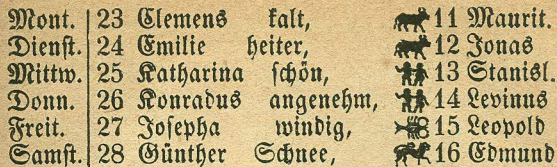 Mont. 23 Clemens kalt, 11 Maurit.
Dienst. 24 Emilie heiter, 12 Jonas
Mittw. 25 Katharina schön, 13 Stanisl.
Donn. 26 Konradus angenehm, 14 Levinus
Freit. 27 Josepha windig, 15 Leopold
Samst. 28 Günther Schnee, 16 Edmund